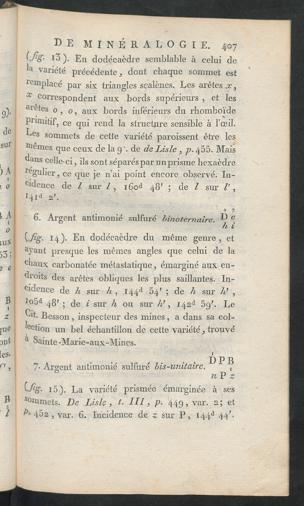 DE MINÉRALOGIE. 407
(fig. 13). En dodécaèdre semblable à celui de
la variété précédente, dont chaque sommet est
remplacé par six triangles scalènes. Les arêtes x,
x correspondent aux bords supérieurs, et les
arêtes o, o, aux bords inférieurs du rhomboïde
primitif, ce qui rend la structure sensible à l'œil.
Les sommets de cette variété paroissent être les
mêmes que ceux de la 9e. de de Lisle, p. 455. Mais
dans celle-ci, ils sont séparés par un prisme hexaèdre
régulier, ce que je n'ai point encore observé. In-
cidence de l sur l, 160d 48'; de l sur l',
141d 2'.
6. Argent antimonié sulfuré binoternaire. D e
h i
(fig. 14). En dodécaèdre du même genre, et
ayant presque les mêmes angles que celui de la
chaux carbonatée métastatique, émarginé aux en-
droits des arêtes obliques les plus saillantes. In-
cidence de h sur h, 144d 54'; de h sur h',
105d 48'; de i sur h ou sur h', 142d 39'. Le
Cit. Besson, inspecteur des mines, a dans sa col-
lection un bel échantillon de cette variété, trouvé
à Sainte-Marie-aux-Mines.
7. Argent antimonié sulfuré bis-unitaire. D P B
n P z
(fig. 15). La variété prismée émarginée à ses
sommets. De Lisle, t. III, p. 449, var. 2; et
p. 452, var. 6. Incidence de z sur P, 144d 44'.